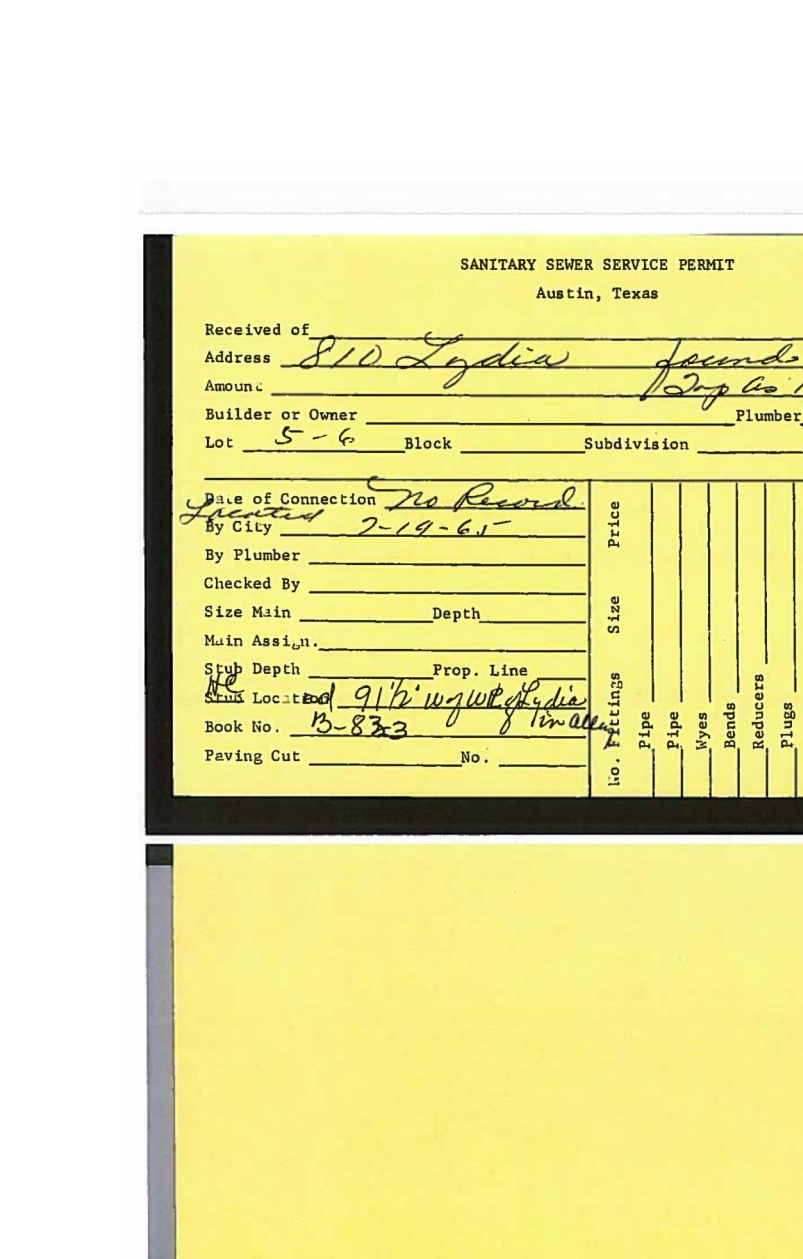 SANITARY SEWER SERVICE PERMIT
Austin, Texas
Received of
Address 810 Lydia found
Amount Tap as
Builder or Owner Plumber
Lot 5-6 Block Subdivision
Date of Connection No Record
Located
By City 7-19-65
By Plumber
Checked By
Size Main Depth
Main Assign.
Stub Depth Prop. Line
Stub Located 91½' W of WPL of Lydia
in alley
Book No. B-833
Paving Cut No.
No. Fittings Size Price
Pipe
Pipe
Wyes
Bends
Reducers
Plugs